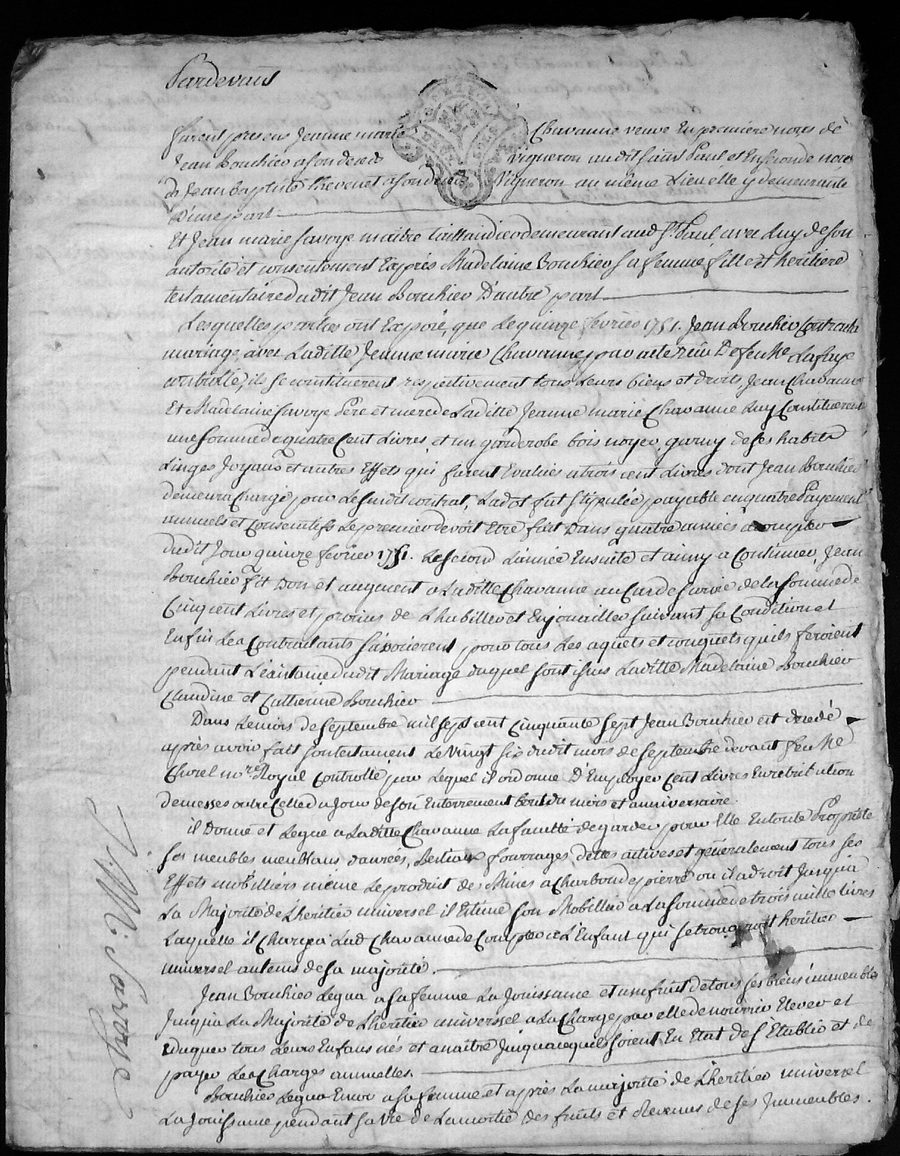 Pardevant
furent presens Jeanne marie Chavanne veuve En premiere noces de
Jean Bouchier a son deced vigneron audit Saint Paul et En seconde noces
de Jean Baptiste Thevenet a son deced Vigneron au même Lieu elle y demeurante
D'une part
Et Jean marie Savoye maître taillandier demeurant aud St. Paul, avec Luy de son
autorité et consentement Exprès Madelaine Bouchier sa femme fille et heritiere
testamentaire dudit Jean Bouchier D'autre part
Lesquelles parties ont Exposé, que Le quinze fevrier 1751. Jean Bouchier Contracta
mariage avec Laditte Jeanne marie Chavanne, par acte reçu Feu Me Lafaye
controllé, ils se constituerent respectivement tous Leurs biens et droits, Jean Chavanne
Et Madelaine Savoye Pere et mere de Laditte Jeanne marie Chavanne Luy Constituerent
une somme de quatre Cent Livres et un garderobe bois noyer garny de ses habits
Linges Joyaux et autres Effets qui furent Evalués a trois cent Livres dont Jean Bouchier
demeura Chargé par Le susdit contrat, La dot fut stipulée payable en quatre Payements
annuels et Consecutifs Le premier devoit Etre fait Dans quatre années a compter
dudit Jour quinze fevrier 1751. Le second L'année Ensuite et ainsy a Continuer Jean
Bouchier fit Don et augment a Laditte Chavanne au Cas de survie de la somme de
Cinq cent Livres et promis de L'habiller et Enjoailler suivant sa Condition et
Enfin Les Contractants s'associerent pour tous Les aquets et conquets qu'ils feroient
pendant L'existance dudit Mariage duquel sont issus Laditte Madelaine Bouchier
Claudine et Catherine Bouchier
Dans Le mois de septembre mil sept cent Cinquante sept Jean Bouchier est decedé
après avoir fait son testament Le Vingt six dudit mois de septembre devant feu Me
Curel nore. Royal Controllé par Lequel il ordonne D'Employer Cent Livres En retribution
de messes outre Celle du Jour de son Enterrement bout du mois et anniversaire.
il Donne et Legue a Laditte Chavanne La faculté de garder pour Elle En toute Proprieté
ses meubles meublans danrées, Bestiaux fourrages dettes actives et generalement tous ses
Effets mobilliers même Le produit des Mines a Charbon de pierre ou il a droit Jusqu'à
La Majorité de L'heritier universel il Estime son Mobillier a La somme de trois mille Livres
Laquelle il Chargea Lad Chavanne de Compter a L'Enfant qui se trouveroit heritier
universel au tems de sa majorité.
Jean Bouchier Legua a sa femme La Jouissance et usufruit de tous ses biens immeubles
Jusqu'a La Majorité de L'heritier universsel a La Charge par elle de nourrir Elever et
Eduquer tous Leurs Enfans nés et a naître Jusqu'a ce quils soient En Etat de s'Etablir et de
payer Les Charges annuelles.
Bouchier Legua Encor a sa femme et après La majorité de L'heritier universel
La Jouissance pendant sa Vie de La moitié des fruits et Revenus de ses Immeubles.
J: M: Savoye